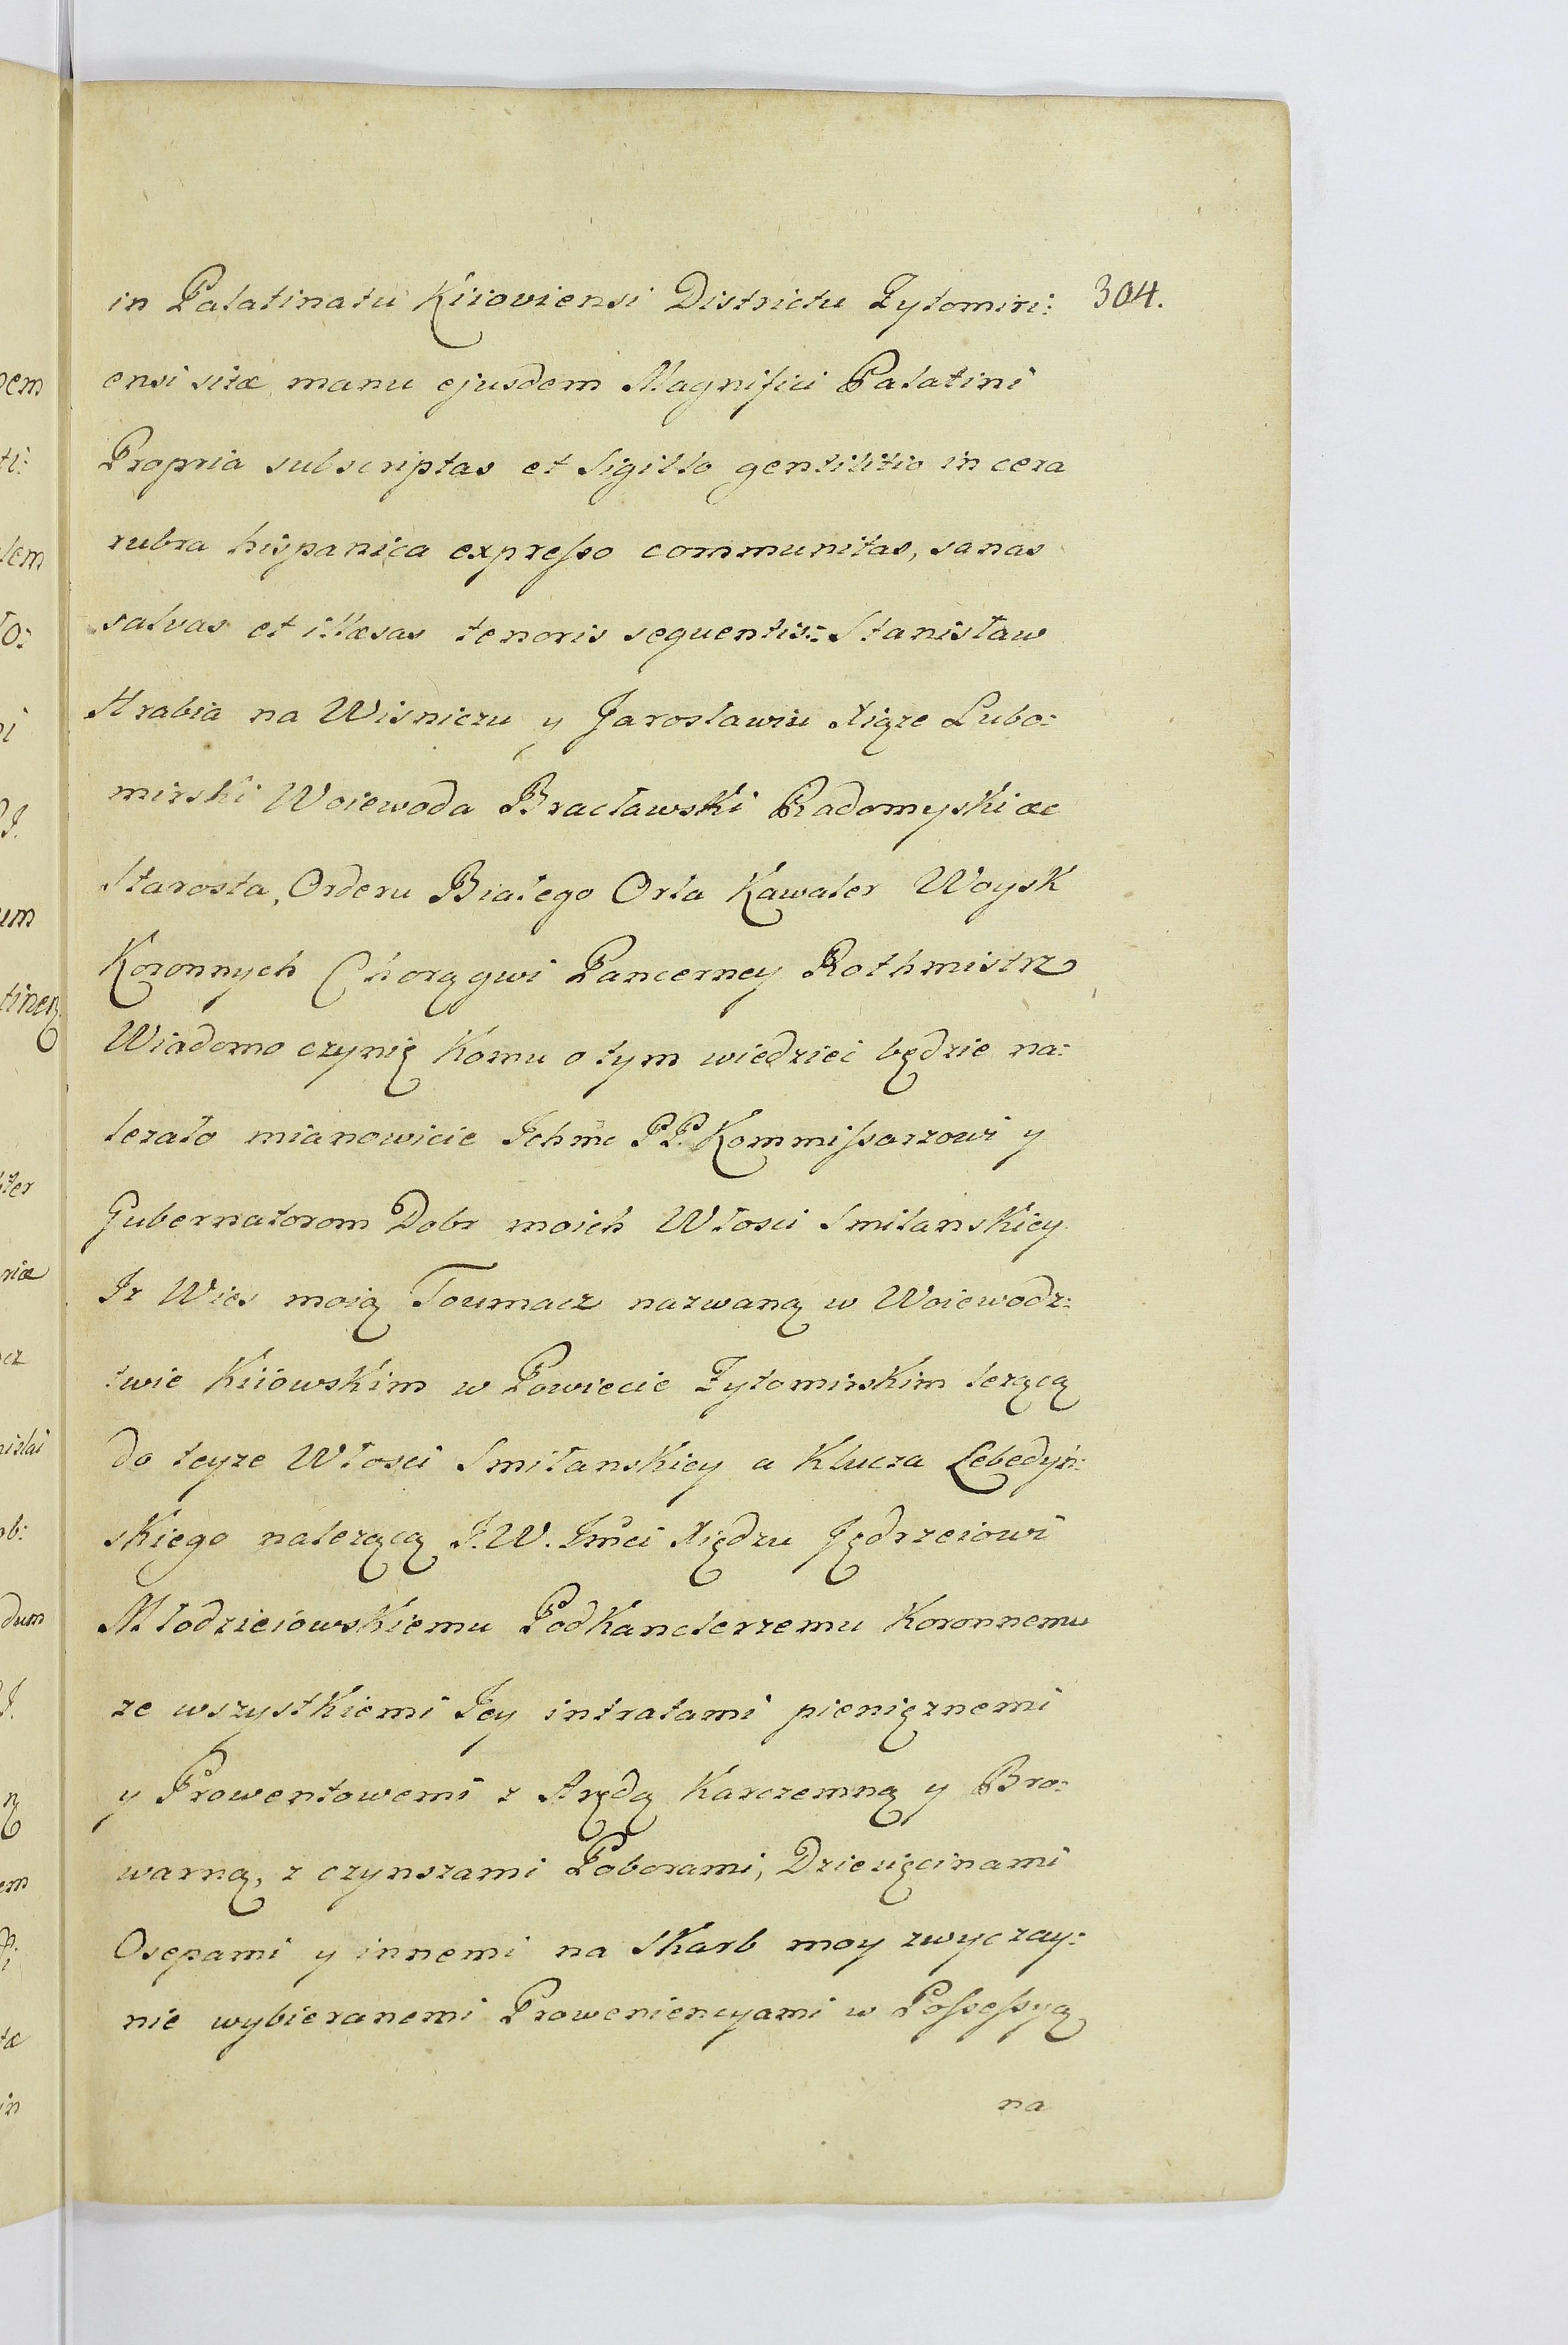 in Palatinatu Kiioviensi Districtu Zytomiri: 304.
ensi sitæ manu ejusdem Magnifici Palatini
Propria subscriptas et Sigillo gentilitio in cera
rubra hispanica expreſso communitas, sanas
salvas et illæsas tenoris sequentis:= Stanisław
Hrabia na Wisniczu y Jarosławiu Xiąze Lubo:
mirski Woiewoda Bracławski Radomyski &c
Starosta, Orderu Białego Orła Kawaler Woysk
Koronnych Chorągwi Pancerney Rothmistrz
Wiadomo czynię Komu o tym wiedzieć będzie na:
lezało mianowicie Ichmc PP. Kommiſsarzowi y
Gubernatorom Dobr moich Włosci Smilanskiey
Iz Wies moią Toumacz nazwaną w Woiewodz:
twie Kiiowskim w Powiecie Zytomirskim lezącą
do teyze Włosci Smilanskiey a Klucza Lebedyń:
skiego nalezącą J.W. Jmci Xiędzu Jędrzeiowi
Młodzieiowskiemu Podkanclerzemu Koronnemu
ze wszystkiemi Jey intratami pienięznemi
y Prowentowemi z Arędą Karczemną y Bro:
warną, z czynszami Poborami, Dziesięcinami
Osepami y innemi na Skarb moy zwyczay:
nie wybieranemi Proweniencyami w Poſseſsyą
na
dem
ti:
lem
To:
ni
um
ter
riæ
nislai
ob:
dum
em
tæ
in